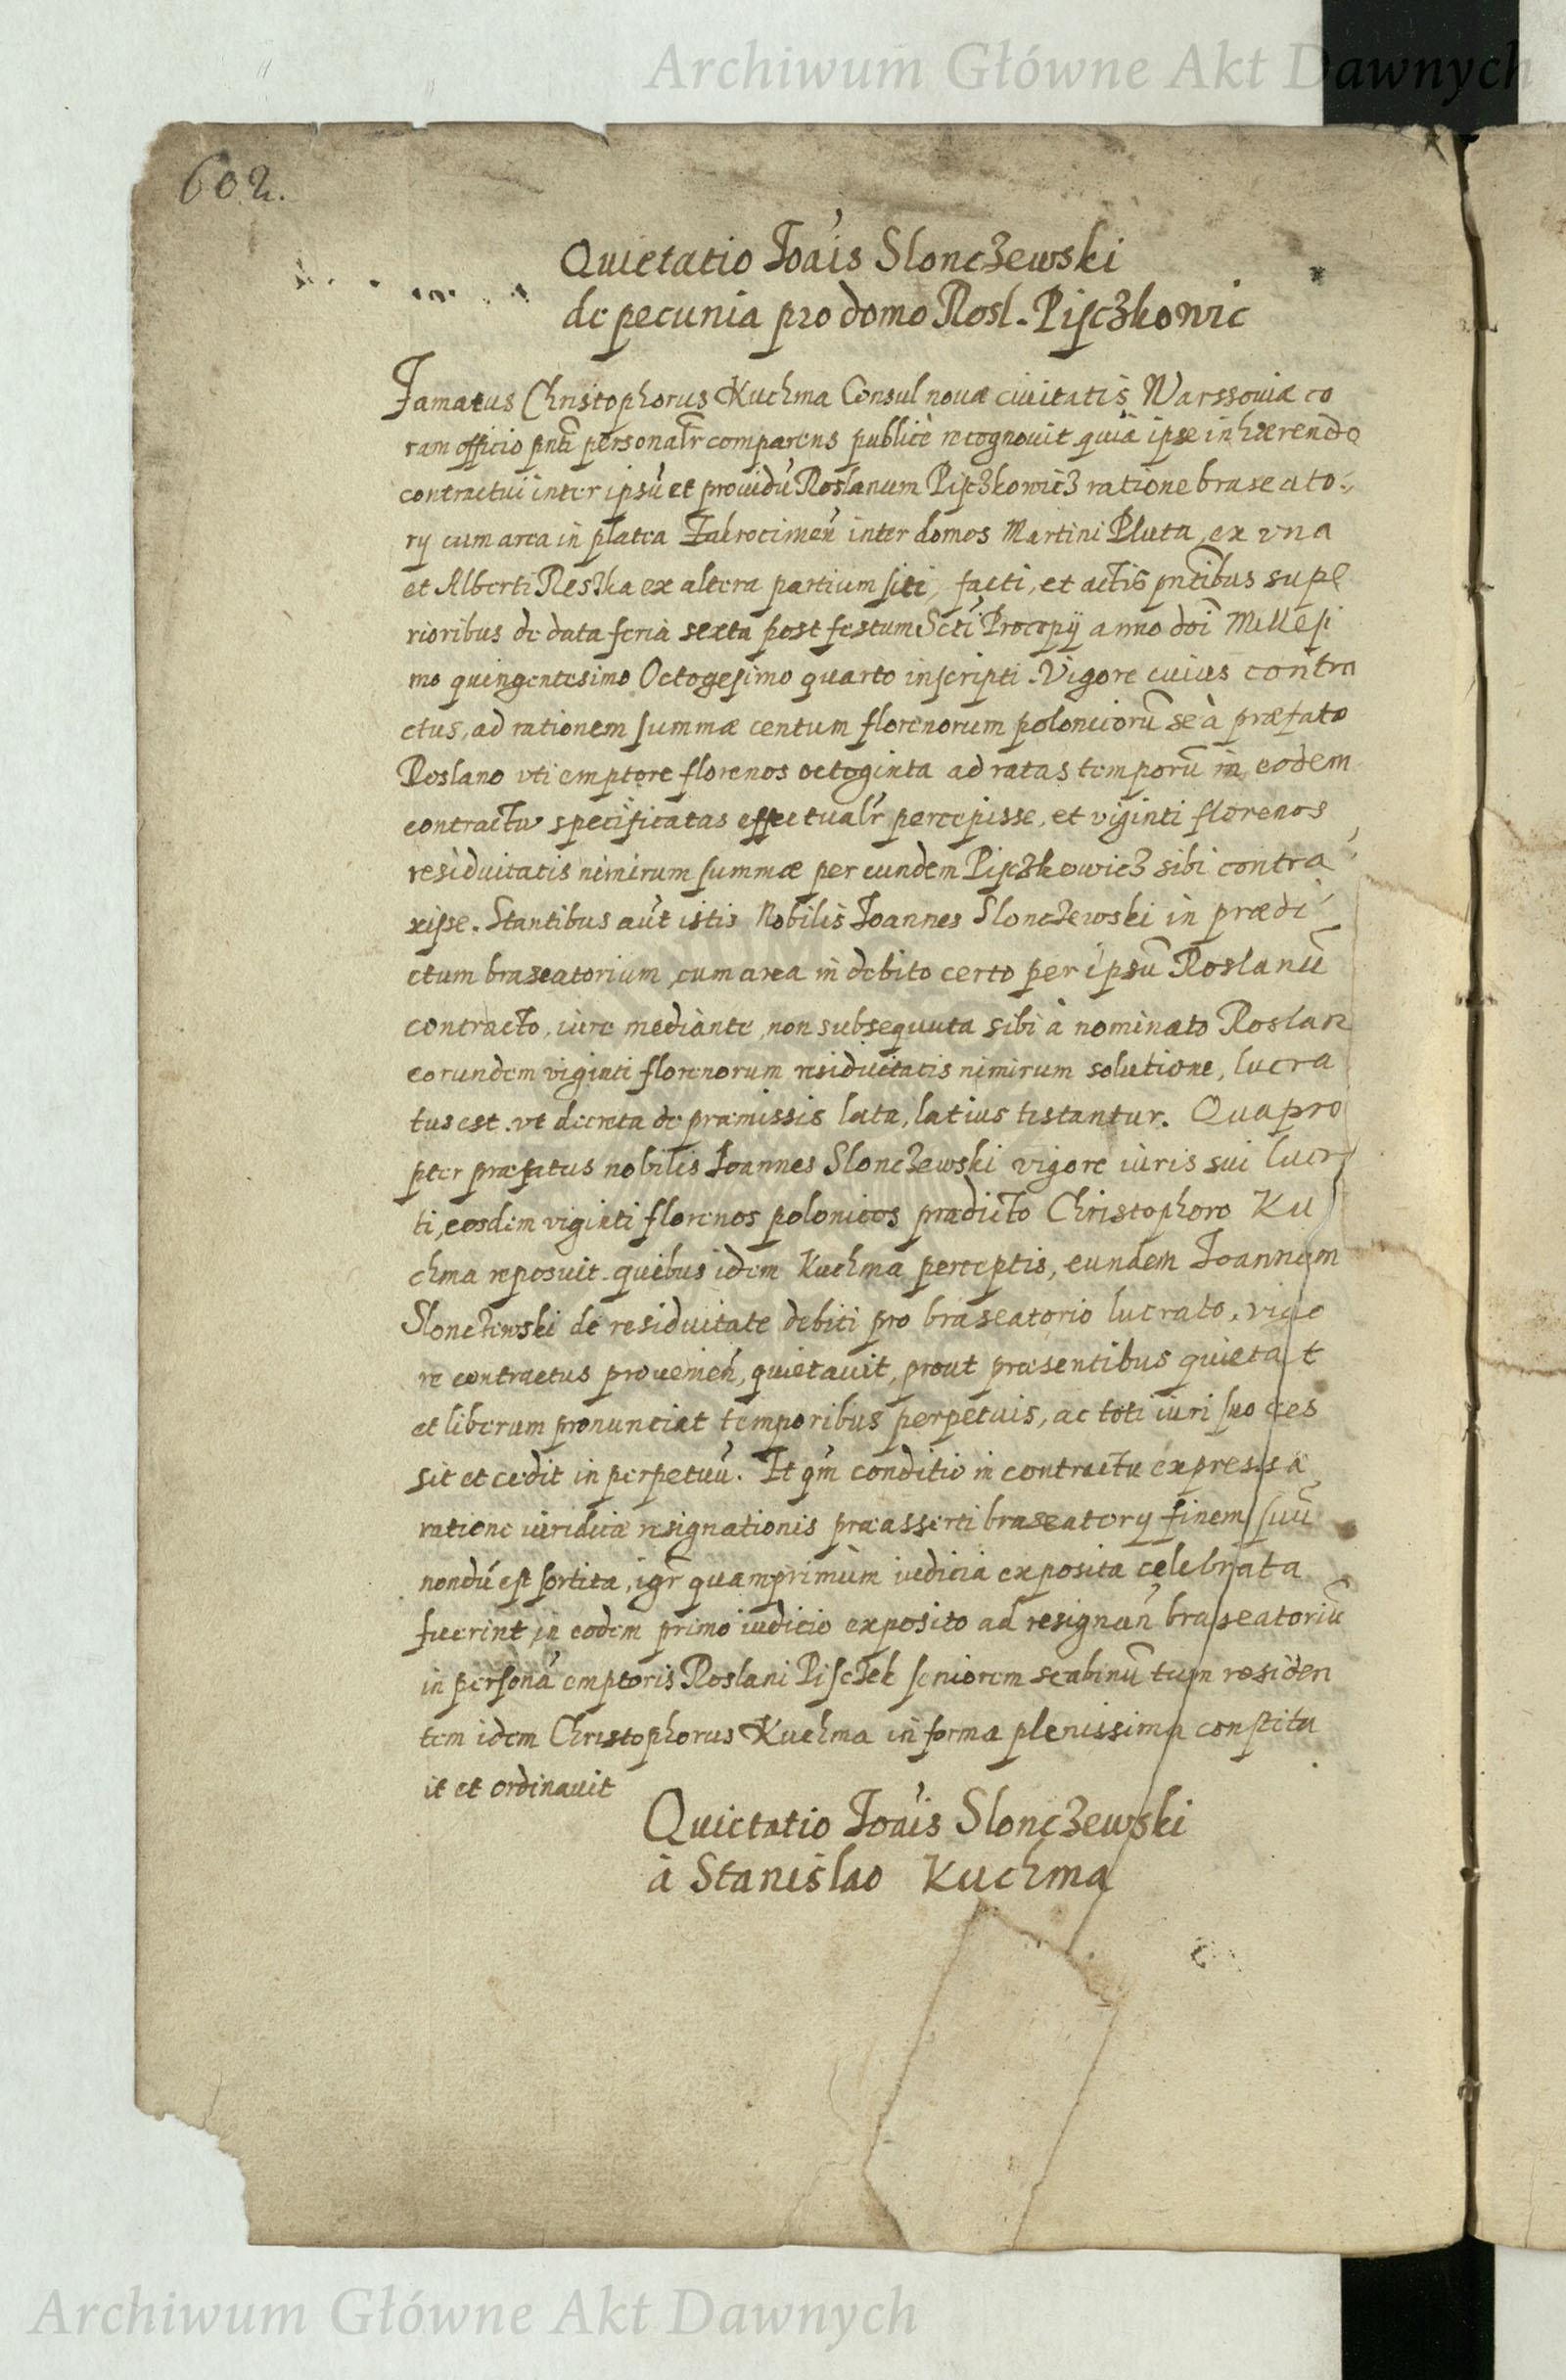 Archiwum Główne Akt Dawnych
602.
Quietatio Joānis Slonczewski
de pecunia pro domo Rosl. Pisczkowic
Famatus Christophorus Kuchma Consul novæ civitatis Warssoviæ co
ram officio pnti personalr comparens publicè recognovit quia ipse inhærendo
contractui inter ipsū et providū Roslanum Pisczkowicz ratione braseato
rij cum area in platea Zakrocimen inter domos Martini Pluta, ex vna
et Alberti Reszka ex altera partium siti, facti, et actis pntibus supe
rioribus de data feria sexta post festum Scti Procopij anno doi Millesi
mo quingentesimo Octogesimo quarto inscripti. Vigore cuius contra
ctus, ad rationem summæ centum florenorum polonicorū se à præfato
Roslano vti emptore florenos octoginta ad ratas temporū in eodem
contractu specificatas effectualr percepisse, et viginti florenos
residuitatis nimirum summæ per eundem Pisczkowicz sibi contra
xisse. Stantibus aūt istis Nobilis Joannes Slonczewski in prædi
ctum braseatorium cum area in debito certo per ipsū Roslanū
contracto, iure mediante, non subsequuta sibi à nominato Roslan
eorundem viginti florenorum residuitatis nimirum solutione, lucra
tus est. vt decreta de præmissis lata, latius testantur. Quapro
pter præfatus nobilis Joannes Slonczewski vigore iuris sui lucr
ti, eosdem viginti florenos polonicos prædicto Christophoro Ku
chma reposuit. quibus idem Kuchma perceptis, eundem Joannem
Slonczewski de residuitate debiti pro braseatorio lucrato, vigo
re contractus provenien, quietavit, prout præsentibus quietat
et liberum pronunciat temporibus perpetuis, ac toti iuri suo ces
sit et cedit in perpetuū. Et qm conditio in contractu expressa
ratione iuridicæ resignationis præasserti braseatorij finem suū
nondū est sortita, igr quamprimum iudicia exposita celebrata
fuerint, in eodem primo iudicio exposito ad resignan braseatoriū
in personā emptoris Roslani Pisczek seniorem scabinū tum residen
tem idem Christophorus Kuchma in forma plenissima constitu
it et ordinavit
Quietatio Joānis Slonczewski
à Stanislao Kuchma
Archiwum Główne Akt Dawnych